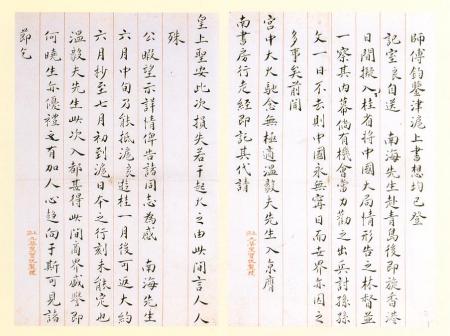 師傅鈞鑒津滬上書想均已登
記室良自送　南海先生赴青島後即旋香港
日間擬入桂省將中國大局情形告之林督並
一察其內幕倘有機會當力勸之出兵討孫孫
文一日不去則中國永無寧日而世界亦因之
多事矣前聞
宮中大火馳念無極適溫毅夫先生入京膺
南書房行走經即託其代請
皇上聖安此次損失若干起火之由此間言人人
殊
公暇望示詳情俾告諸同志為感　南海先生
六月中旬乃能抵滬良遊桂一月後可返大約
六月抄至七月初到滬日本之行刻未能定也
溫毅夫先生此次入都甚得此間商界盛譽即
何曉生亦優禮有加人心趨向于斯可見諸
節乞